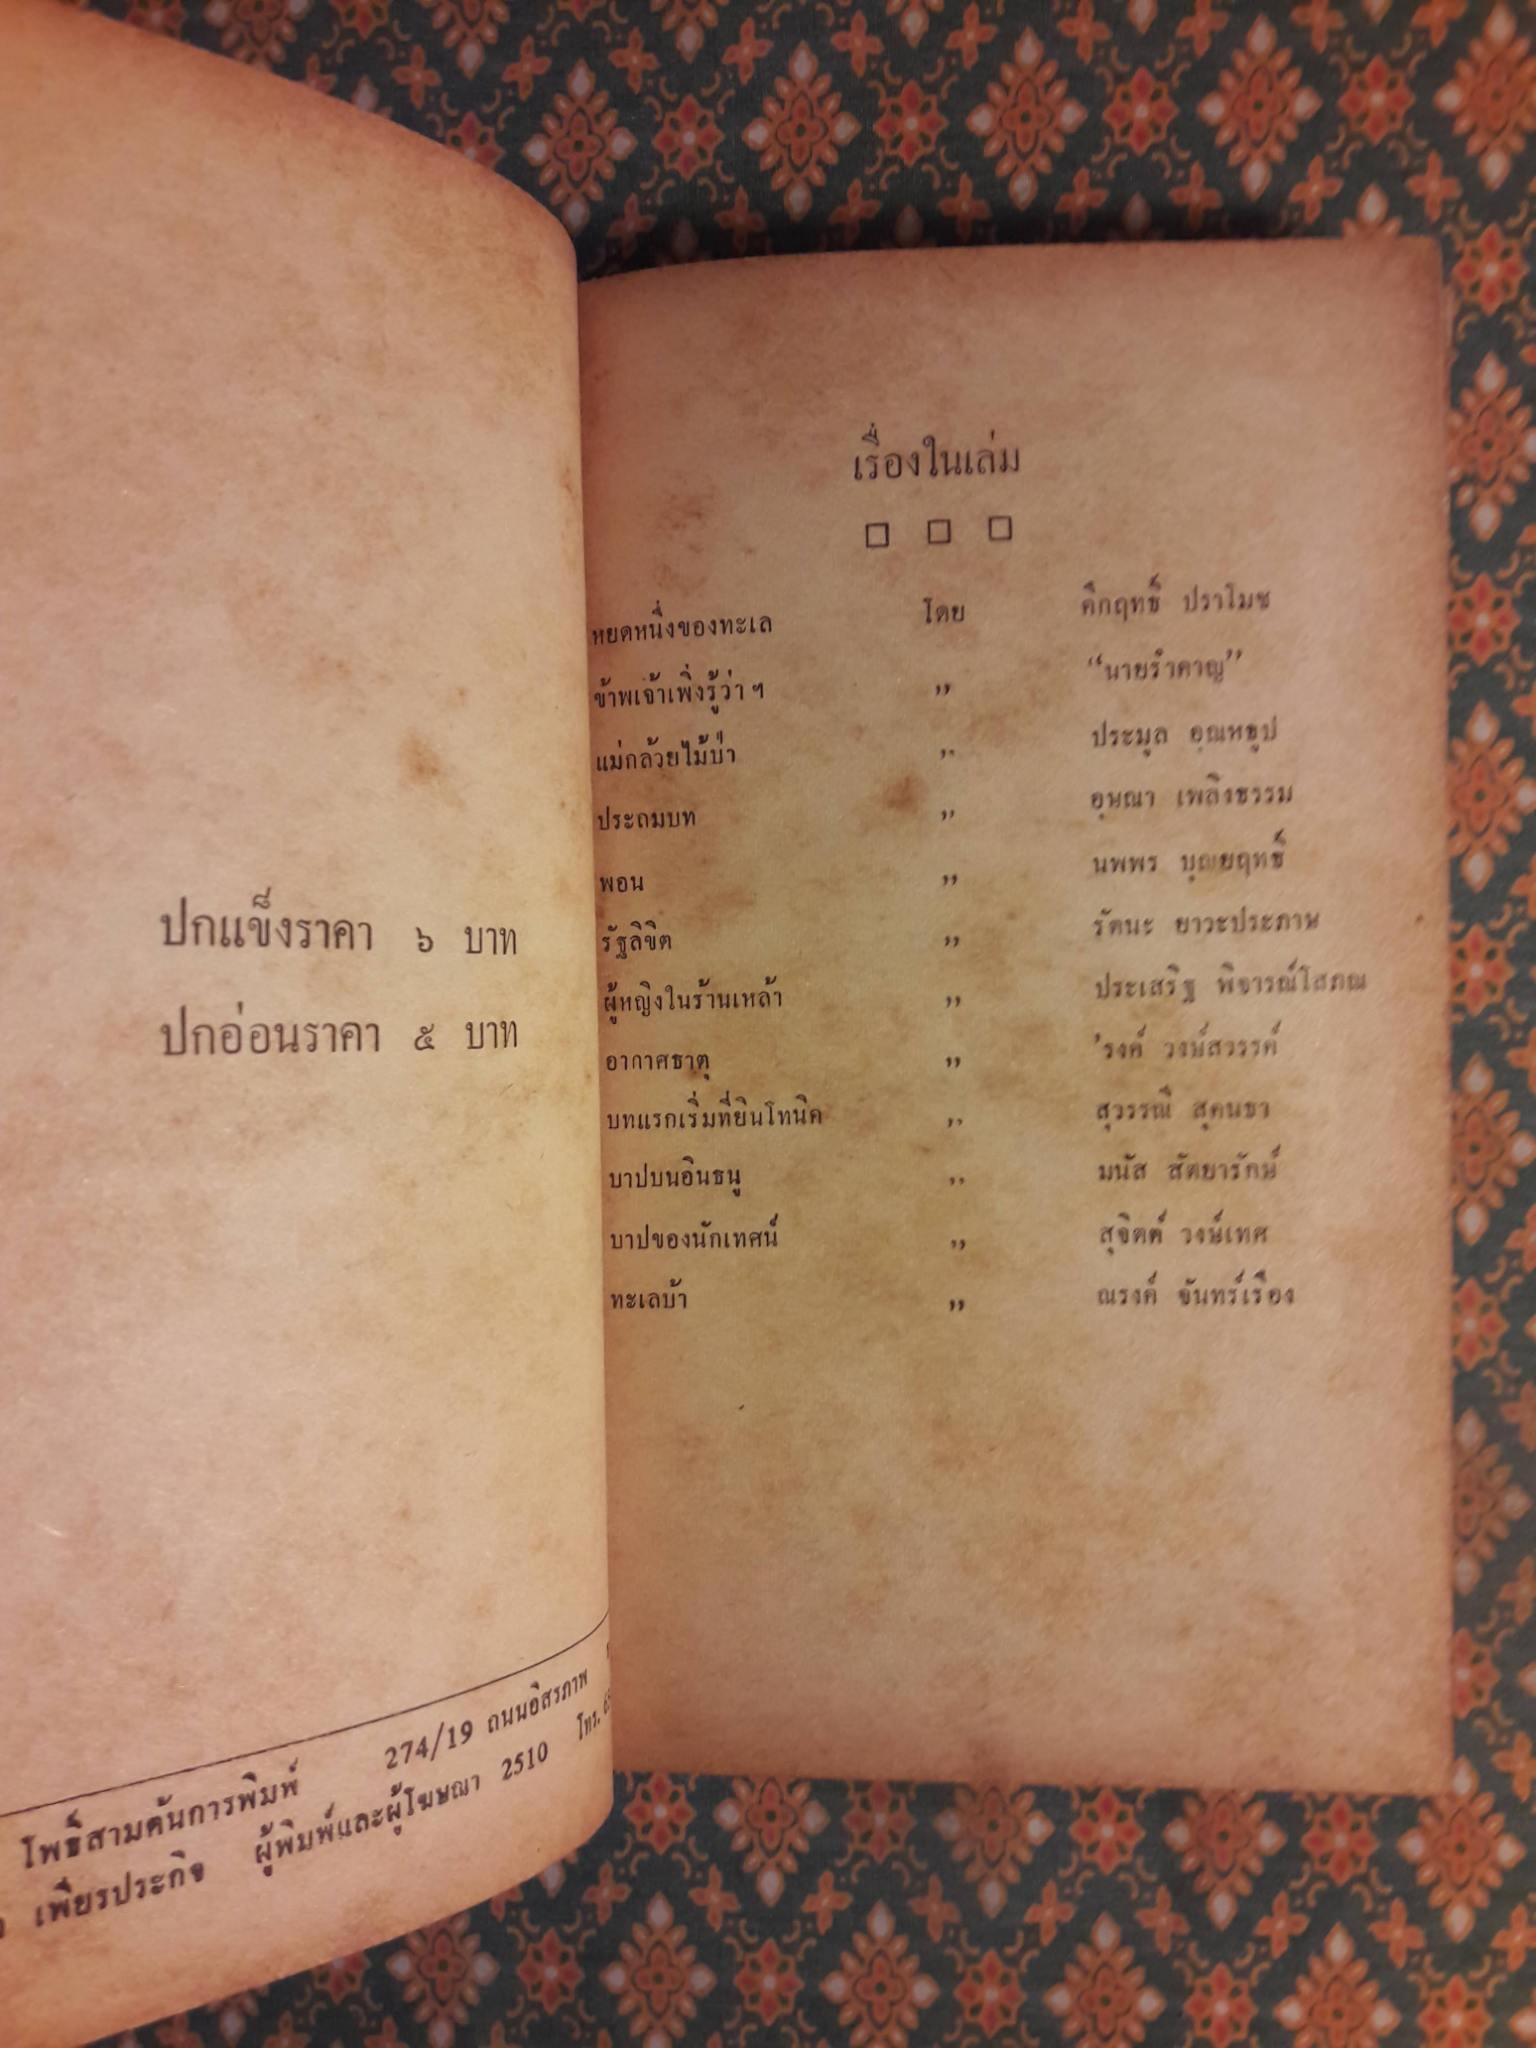 ปกแข็งราคา ๖ บาท
ปกอ่อนราคา ๕ บาท
โพธิ์สามต้นการพิมพ์ 274/19 ถนนอิสรภาพ
เพียรประกิจ ผู้พิมพ์และผู้โฆษณา 2510 โทร.
เรื่องในเล่ม
□ □ □
หยดหนึ่งของทะเล โดย คึกฤทธิ์ ปราโมช
ข้าพเจ้าเพิ่งรู้ว่า ฯ ,, “นายรำคาญ”
แม่กล้วยไม้ป่า ,, ประมูล อุณหธูป
ประถมบท ,, อุษณา เพลิงธรรม
พอน ,, นพพร บุญยฤทธิ์
รัฐลิขิต ,, รัตนะ ยาวะประภาษ
ผู้หญิงในร้านเหล้า ,, ประเสริฐ พิจารณ์โสภณ
อากาศธาตุ ,, ’รงค์ วงษ์สวรรค์
บทแรกเริ่มที่ยินโทนิค ,, สุวรรณี สุคนธา
บาปบนอินธนู ,, มนัส สัตยารักษ์
บาปของนักเทศน์ ,, สุจิตต์ วงษ์เทศ
ทะเลบ้า ,, ณรงค์ จันทร์เรือง